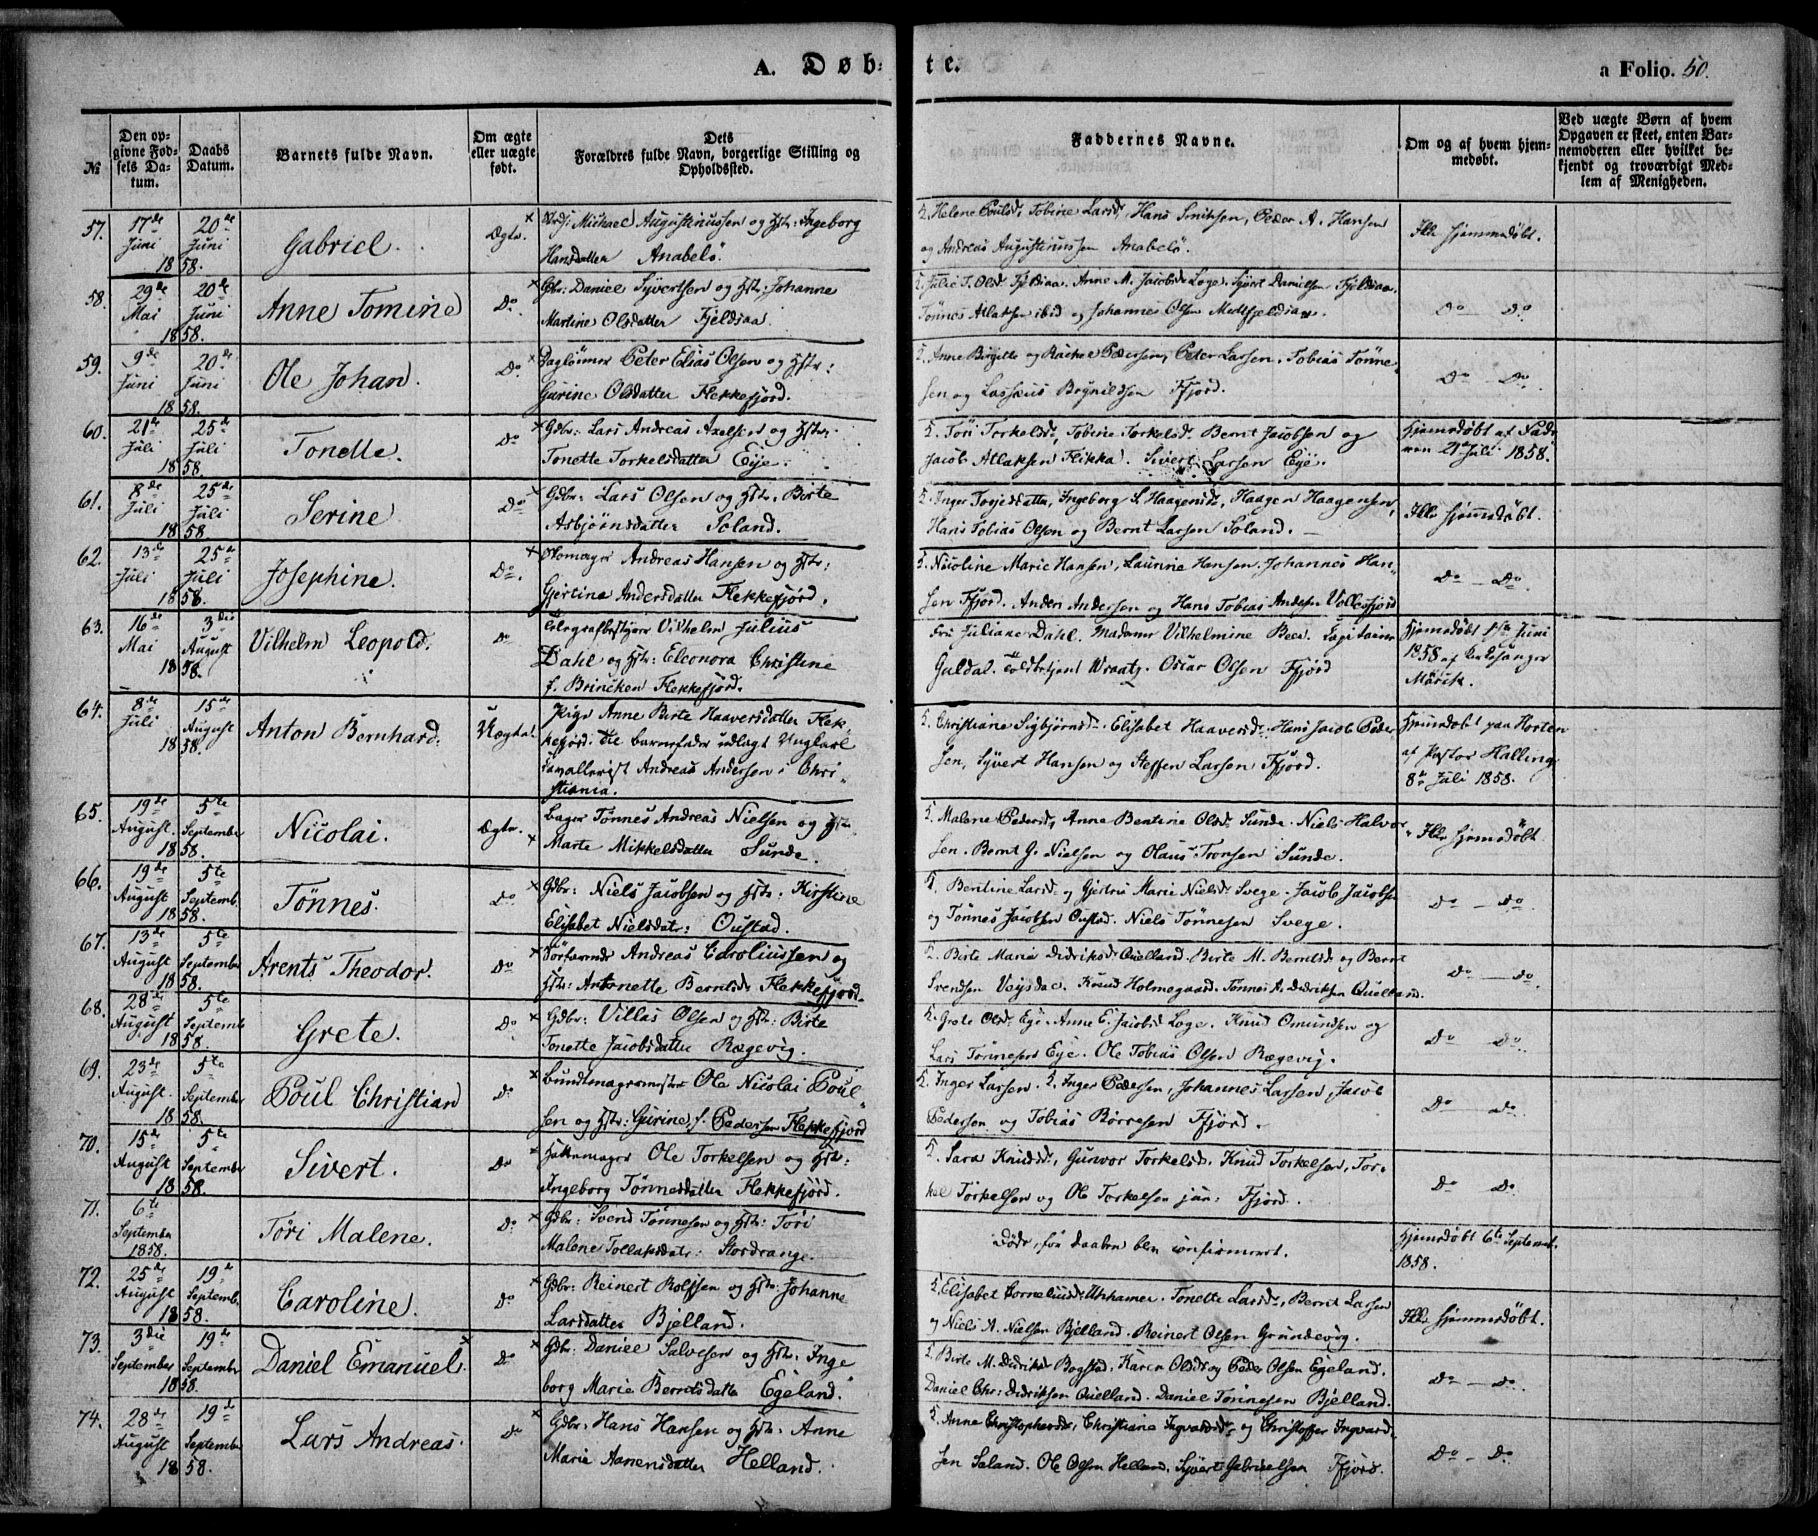 A. Døb-
te.
a Folio. 50.
№
Den op-
givne Fød-
sels Da-
tum.
Daabs
Datum.
Barnets fulde Navn.
Om ægte
eller uægte
født.
Dets
Forældres fulde Navn, borgerlige Stilling og
Opholdssted.
Faddernes Navne.
Om og af hvem hjem-
medøbt.
Ved uægte Børn af hvem
Opgaven er skeet, enten Bar-
nemoderen eller hvilket be-
kjendt og troværdigt Med-
lem af Menigheden.
57. 17de Juni 1858. 20de Juni Gabriel. Ægte.
Michael Augustinussen og Hstr: Ingeborg
Hansdatter Anabelø.
Helene Poulsd, Tobine Larsd, Hans Sniksen, Peder A. Hansen
og Andreas Augustinussen Anabelø.
Ikke hjemmedøbt.
58. 29de Mai 1858. 20de Juni Anne Tomine Do.
Gdbr: Daniel Syvertsen og Hstr: Johanne
Martine Olsdatter Fjeldsaa.
Julie T. Olsd Fjeldsaa. Anne M. Jacobsd Loge. Sivert Danielsen Fjeldsaa.
Tønnes Atlaksen ibid og Johannes Olsen Medfjeldsaa.
Do - Do
59. 9de Juni 1858. 20de Juni Ole Johan. Do
Dagleiner Peter Elias Olsen og Hstr:
Gurine Olsdatter Flekkefjord.
Anne Birgitte og Rachel Pedersen, Peter Larsen, Tobias Tønne-
sen og Lassæus Brynildsen Ffjord.
Do - Do
60. 21de Juli 1858. 25de Juli Tonette. Do
Gdbr: Lars Andreas Axelsen og Hstr:
Tonette Torkelsdatter Eije.
Tøri Torkelsd, Tobine Torkelsd. Bernt Jacobsen og
Jacob Atlaksen Flikka. Sivert Larsen Eye.
Hjemmedøbt af
21de Juli 1858.
61. 8de Juli 1858. 25de Juli Serine Do
Gdbr: Lars Olsen og Hstr: Birte
Asbjørnsdatter Soland.
Inger Terjesdatter, Ingeborg S. Haagensd, Haagen Haagensen,
Hans Tobias Olsen og Bernt Larsen Soland.
Ikke hjemmedøbt.
62. 13de Juli 1858. 25de Juli Josephine. Do.
Skomager Andreas Hansen og Hstr:
Gjertine Andersdatter Flekkefjord.
Nicoline Marie Hansen, Laurine Hansen, Johannes Han-
sen Ffjord. Anders Andersen og Hans Tobias Andersen Vollesfjord
Do - Do
63. 16de Mai 1858. 3die August Vilhelm Leopold. Do
Telegrafbestyrer Vilhelm Julius
Dahl og Hstr: Eleonora Christine
f. Brincken Flekkefjord.
Frk Juliane Dahl. Madame Vilhelmine Beer. Capitaine
Guldal. Toldbetjent Wraatz. Oscar Olsen Ffjord
Hjemmedøbt 1ste Juni
1858 af Kirkesanger
64. 8de Juli 1858. 15de August Anton Bernhard. Uægte.
Pige Anne Birte Haaversdatter Flek-
kefjord. Til barnefader udlagt Ungkarl
Cavallerist Andreas Andersen i Chri-
stiania.
Christiane Sigbjørnsd. Elisabet Haaversd. Hans Jacob Peder-
sen, Syvert Hansen og Steffen Larsen Ffjord.
Hjemmedøbt paa Horten
af Pastor Halling
8de Juli 1858.
65. 19de August 1858. 5te September Nicolai. Ægte.
Bager Tønnes Andreas Nielsen og Hstr
Marte Mikkelsdatter Sunde.
Malene Pedersd, Anne Bentine Olsd Sunde. Niels Halvor-
sen. Bernt G. Nielsen og Olaus Tronsen Sunde.
Ikke hjemmedøbt
66. 19de August 1858. 5te Septemb. Tønnes. Do.
Gdbr: Niels Jacobsen og Hstr: Kirstine
Elisabet Nielsdatr: Oustad.
Bentine Larsd og Gjertrud Marie Nielsd Svege. Jacob Jacobsen
og Tønnes Jacobsen Oustad. Niels Tønnesen Svege.
Do - Do
67. 13de August 1858. 5te September Arents Theodor. Do
Andreas Caroliussen og
Hstr: Antonette Berntsd Flekkefjord.
Birte Marie Didriksd Quelland. Birte M. Berntsd og Bernt
Svendsen Veisdal. Knud Holmegaard. Tønnes A. Didriksen Quelland.
Do - Do
68. 28de August 1858. 5te Septemb Grete. Do
Gdbr: Villas Olsen og Hstr: Birte
Tonette Jacobsdatter Rægevig.
Grete Olsd. Eye. Anne E. Jacobsd Loge. Knud Omundsen og
Lars Tønnesen Eye. Ole Tobias Olsen Rægevig.
Do Do.
69. 23de August. 1858. 5te September Poul Christian Do
Bundtmagermester Ole Nicolai Poul-
sen og Hstr: Gurine f. Pedersen Flekkefjord
Inger Larsen. Inger Pedersen, Johannes Larsen, Jacob
Pedersen og Tobias Børresen Ffjord.
Do Do.
70. 15de August 1858. 5te September Sivert. Do
Hattemager Ole Torkelsen og Hstr:
Ingeborg Tønnesdatter Flekkefjord.
Sara Knudsd, Gunvor Torkelsd. Knud Torkelsen, Tor-
kel Torkelsen og Ole Torkelsen jun: Ffjord.
Do Do.
71. 6te September 1858. Tøri Malene. Do
Gdbr: Svend Tønnesen og Hstr: Tøri
Malene Tollaksdatr: Stordrange.
Døde, før Daaben blev confirmeret.
Hjemdøbt 6te Septemb.
1858.
72. 25de August 1858. 19de Septemb. Caroline. Do
Gdbr: Reinert Rolfsen og Hstr: Johanne
Larsdatter Bjelland.
Elisabet Corneliusd Uhhamer. Tonette Larsd, Bernt Larsen
og Niels A. Nielsen Bjelland. Reinert Olsen Grundevig.
Ikke hjemmedøbt.
73. 3die September 1858. 19de September Daniel Emanuel. Do
Gdbr: Daniel Salvesen og Hstr: Inge-
borg Marie Berntsdatter Egeland.
Birte M. Didriksd Bogstad. Karen Olsd og Peder Olsen Egeland.
Daniel Chr: Didriksen Quelland. Daniel Tønnesen Bjelland.
Do - Do.
74. 28de August 1858. 19de September Lars Andreas. Do
Gdbr: Hans Hansen og Hstr: Anne
Marie Aanensdatter Helland.
Anne Christophersd, Christiane Ingvaldsd og Christoffer Ingvard-
sen Seland. Ole Olsen Helland. Syvert Gabrielsen Ffjord.
Do - Do.